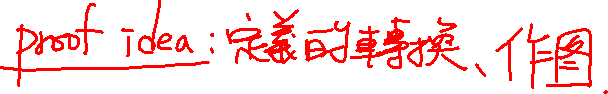 proof idea:定義的轉換、作图.